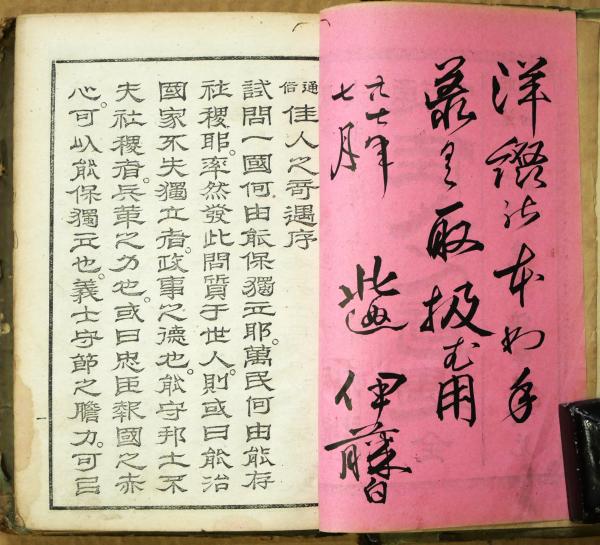 取扱無用
七月
伊藤白
通俗 佳人之奇遇序
試問一國何由能保獨立耶。萬民何由能存
社稷耶。率然發此問質于世人。則或曰能治
國家不失獨立者。政事之德也。能守邦土不
失社稷者。兵革之力也。或曰忠臣報國之赤
心。可以能保獨立也。義士守節之膽力。可以